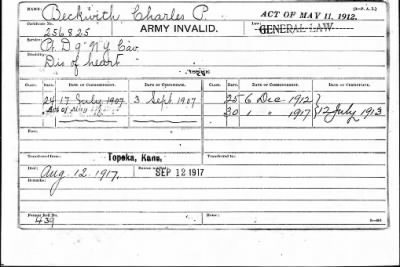 NAME: Beckwith, Charles P. ACT OF MAY 11, 1912.
Certificate No.: 256825 ARMY INVALID. Law: GENERAL LAW
Service: Pt. D 9" N.Y. Cav
Disability: Dis of heart
CLASS. RATE. DATE OF COMMENCEMENT. DATE OF CERTIFICATE. CLASS. RATE. DATE OF COMMENCEMENT. DATE OF CERTIFICATE.
24 17 July 1907 3 Sept 1907 25 6 Dec 1912 }
Act of May 30 1 " 1917 } 12 July 1913
Died:
Transferred from: Topeka, Kans. Transferred to:
Died: Aug. 12. 1917. Bureau notified: SEP 12 1917
Remarks:
Former Roll No. 439 Home: